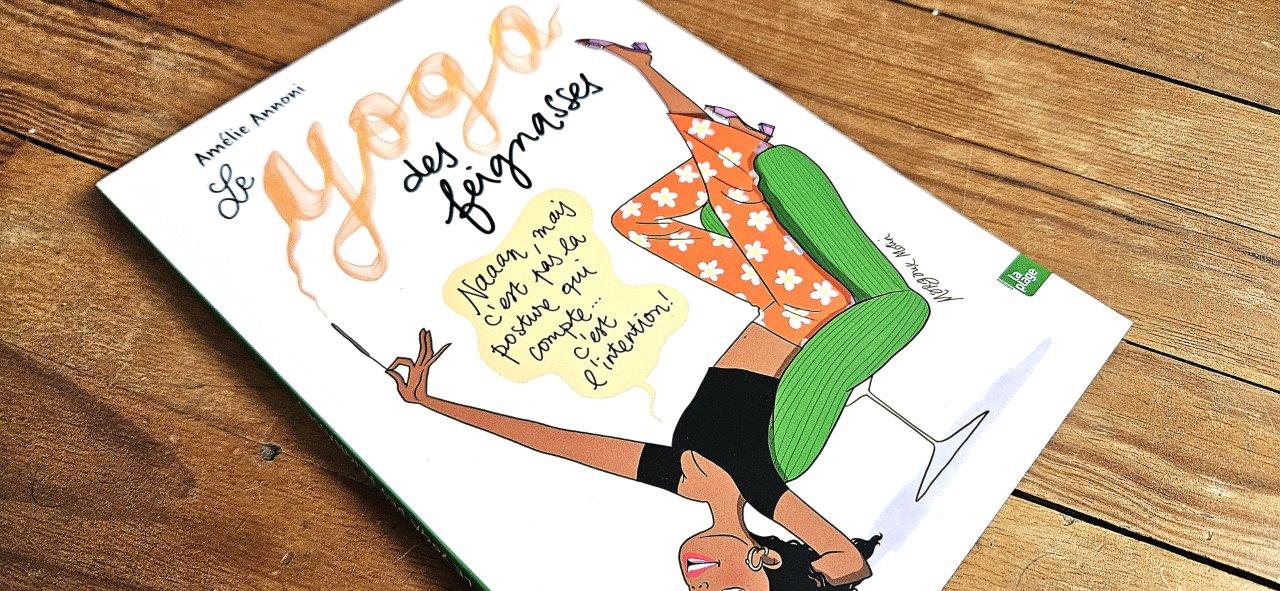 Amélie Annoni
Le
yoga
des
feignasses
Naaan, mais
c'est pas la
posture qui
compte...
c'est
l'intention!
la
plage